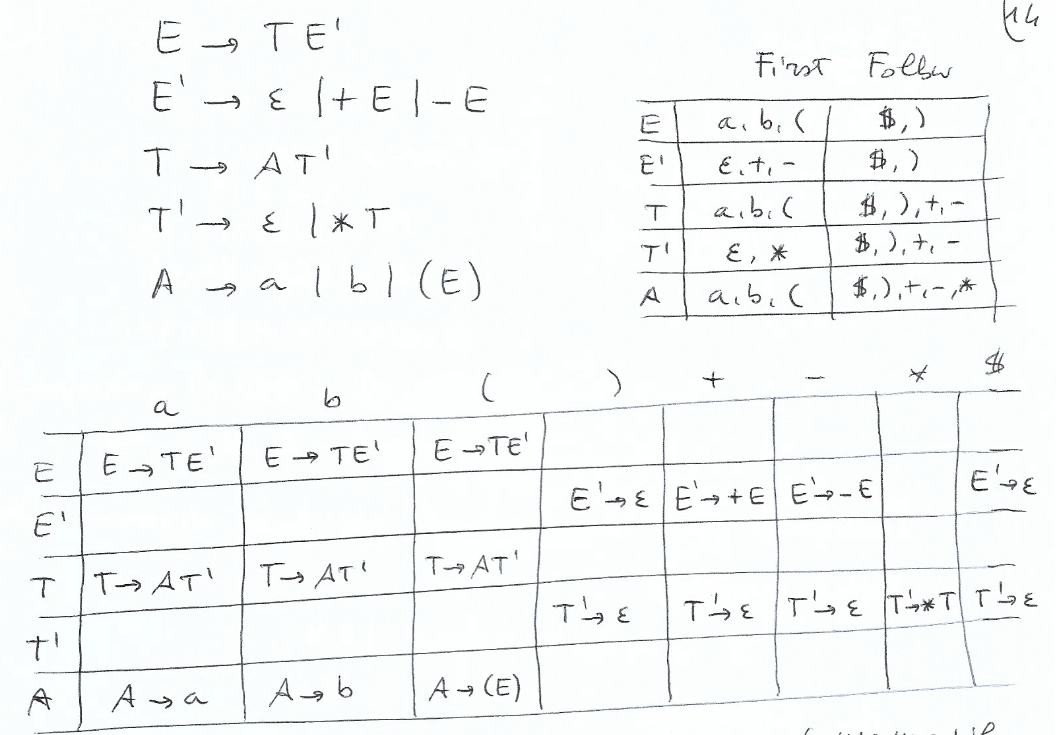 14
E → T E'
E' → ε | + E | - E
T → A T'
T' → ε | * T
A → a | b | ( E )
First Follow
E a, b, ( $, )
E' ε, +, - $, )
T a, b, ( $, ), +, -
T' ε, * $, ), +, -
A a, b, ( $, ), +, -, *
a b ( ) + - * $
E E → TE' E → TE' E → TE'
E' E' → ε E' → + E E' → - E E' → ε
T T → AT' T → AT' T → AT'
T' T' → ε T' → ε T' → ε T' → * T T' → ε
A A → a A → b A → (E)